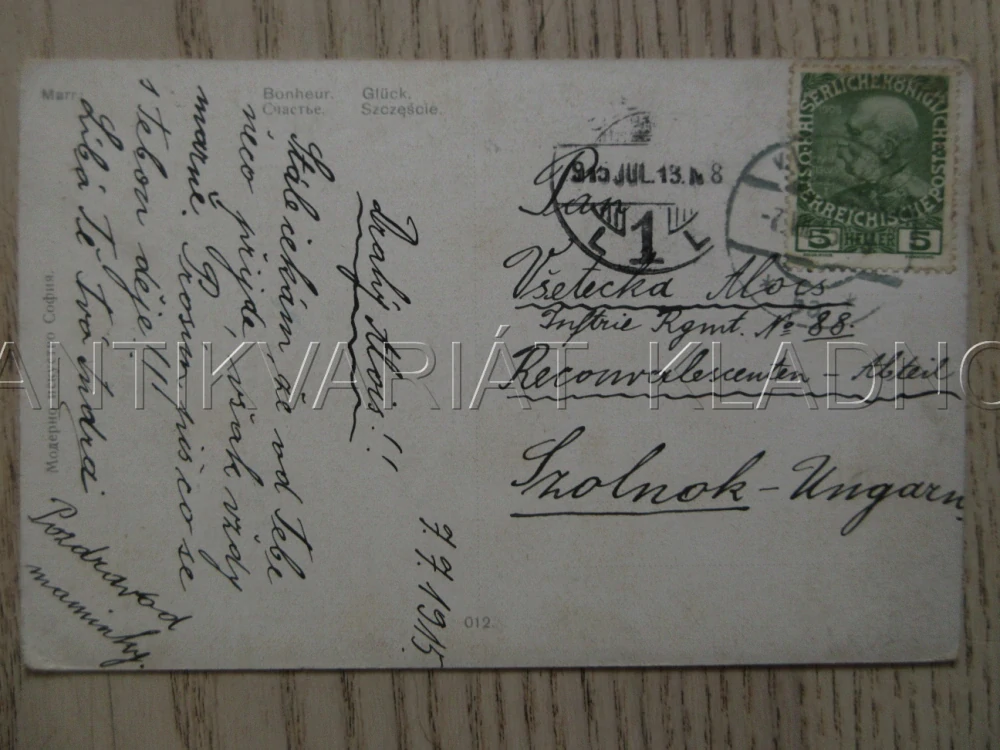 Marr.
Bonheur. Glück.
Счастье. Szczęście.
7.7.1915
Drahý Alois!!
Stále čekám až od Tebe
něco přijde, však vždy
marně. Prosím piš co se
s Tebou děje!!!
Líbá Tě Tvá Indra
Pozdrav od
maminky.
012
София.
K.K. ÖSTERREICHISCHE
5 HELLER 5
915 JUL. 13. N. 8
1
Pan
Všetečka Alois
Inftrie Rgmt. № 88.
Reconvalescenten - Abteil
Szolnok - Ungarn
ANTIKVARIÁT KLADNO